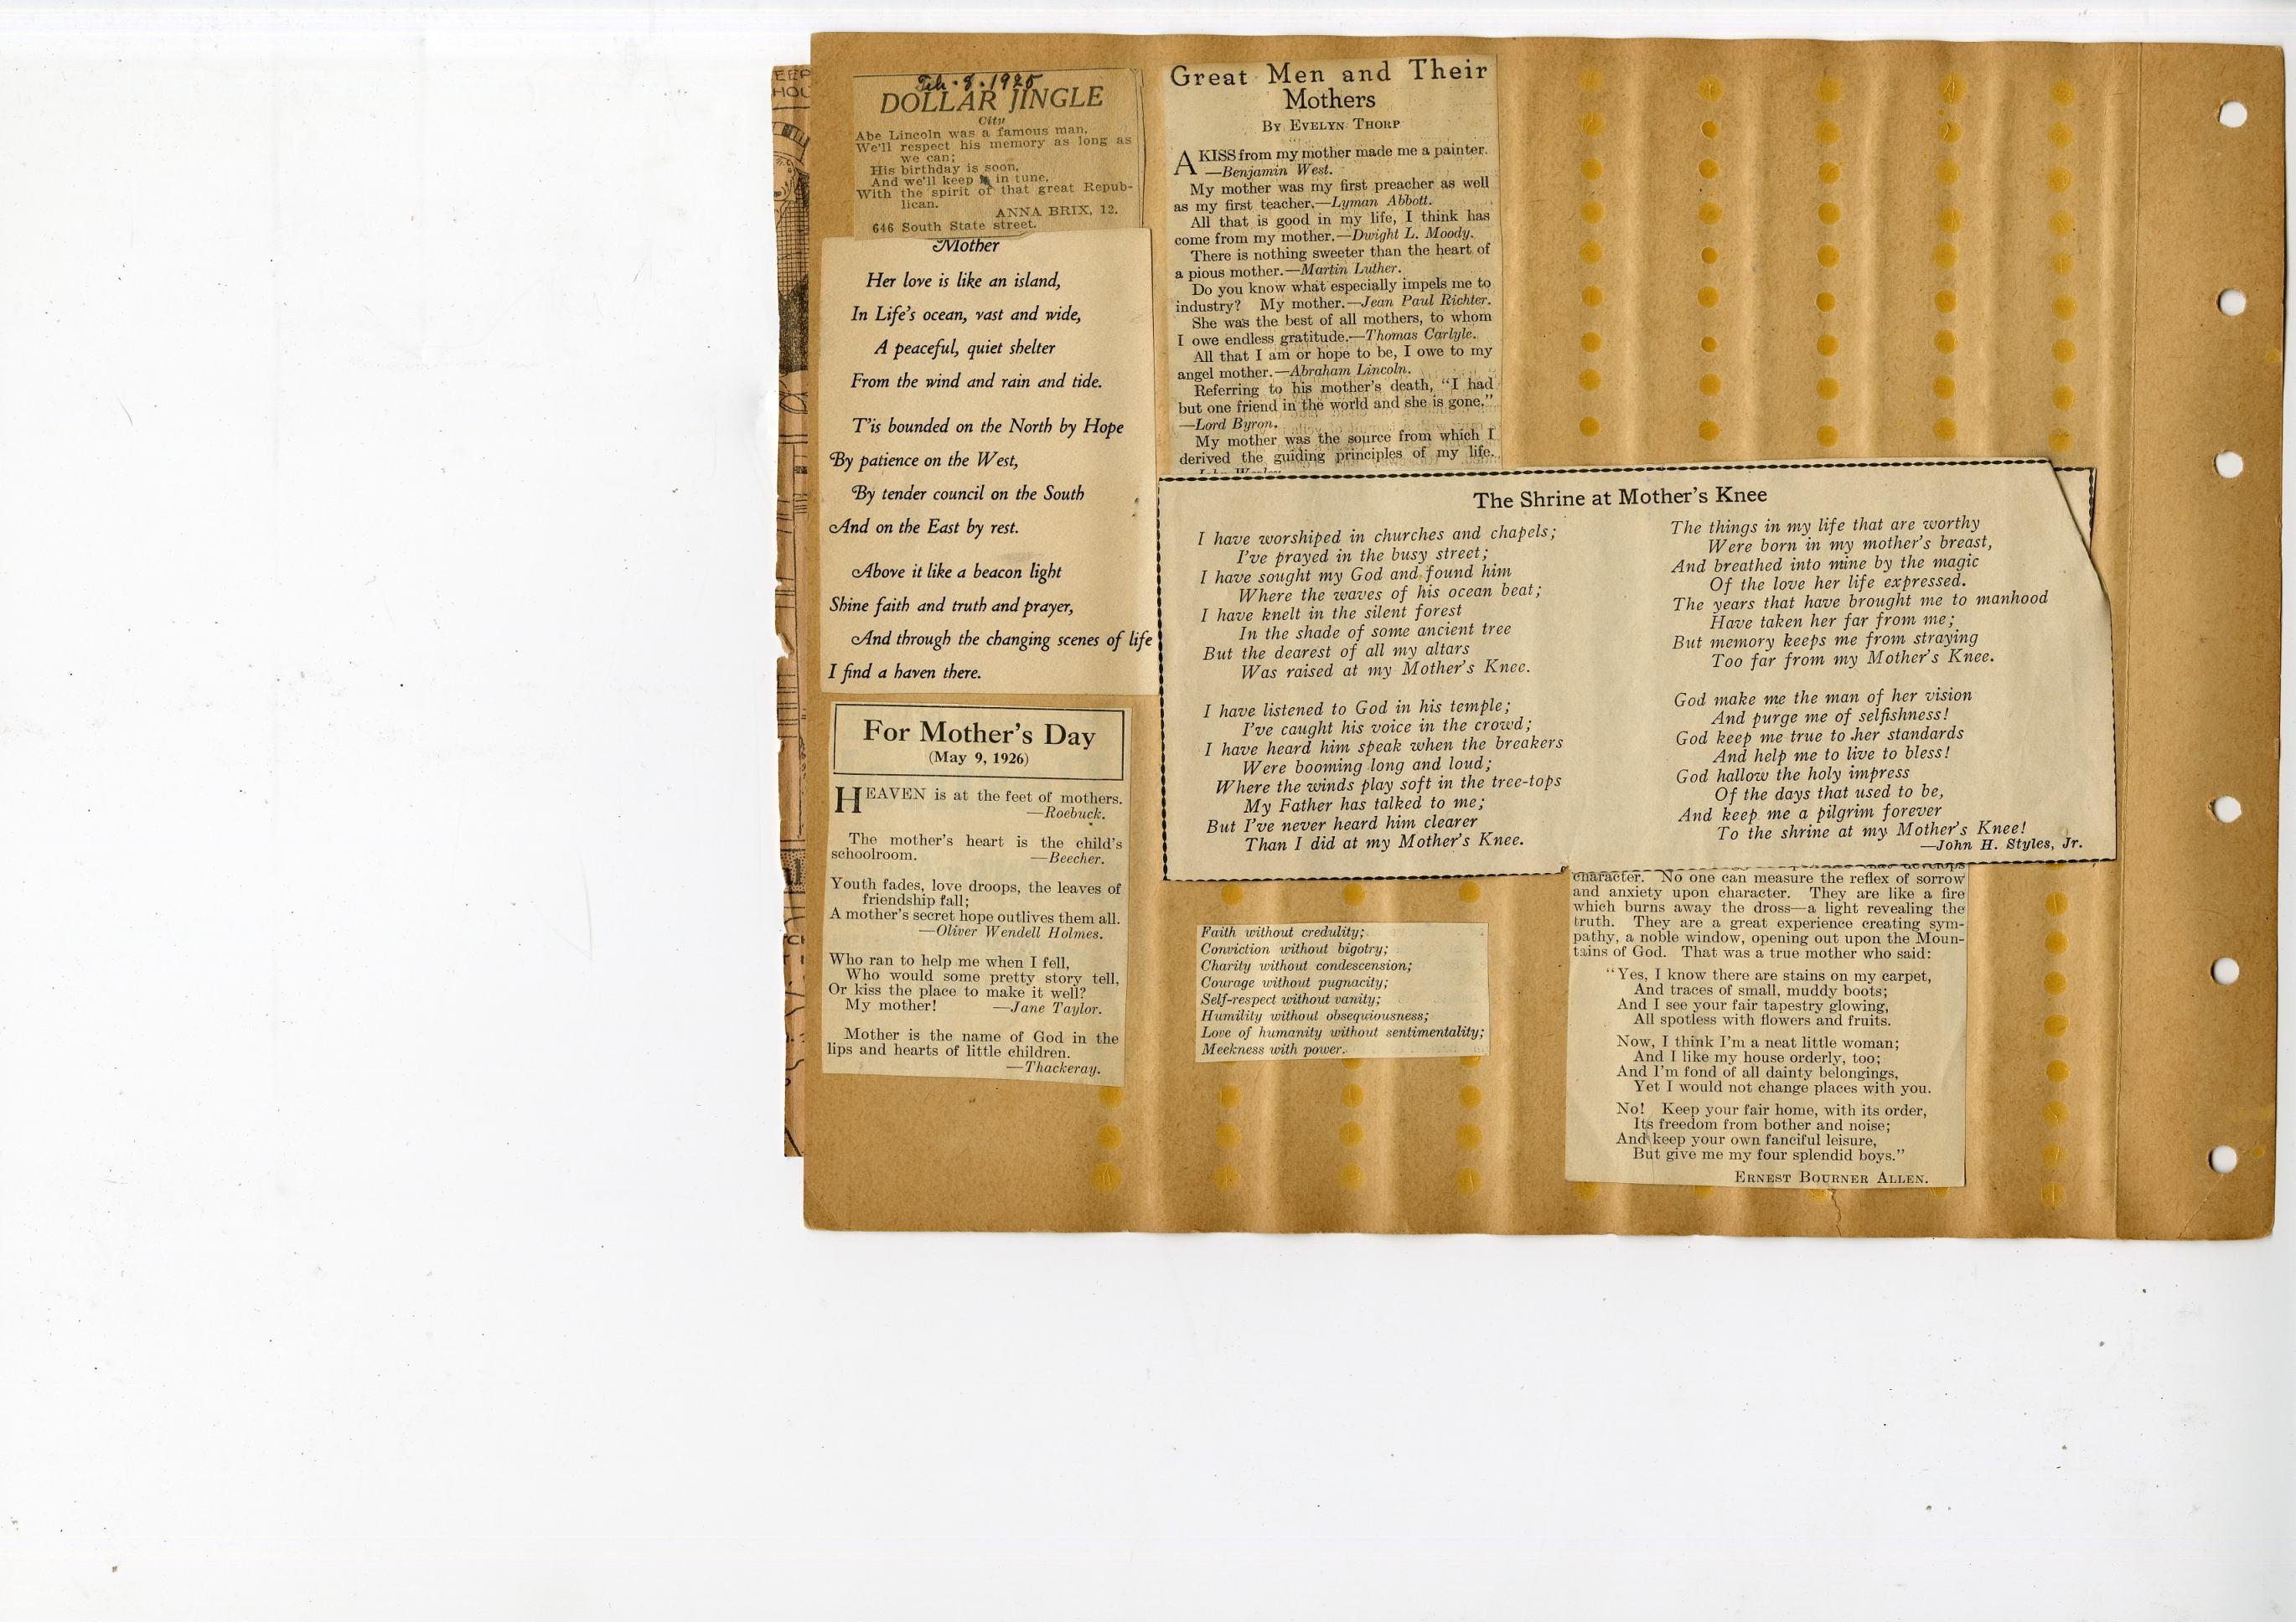 Feb. 8. 1925
DOLLAR JINGLE
City
Abe Lincoln was a famous man,
We'll respect his memory as long as
we can;
His birthday is soon,
And we'll keep in tune,
With the spirit of that great Repub-
lican.
ANNA BRIX, 12.
646 South State street.
Mother
Her love is like an island,
In Life's ocean, vast and wide,
A peaceful, quiet shelter
From the wind and rain and tide.
T'is bounded on the North by Hope
By patience on the West,
By tender council on the South
And on the East by rest.
Above it like a beacon light
Shine faith and truth and prayer,
And through the changing scenes of life
I find a haven there.
For Mother's Day
(May 9, 1926)
HEAVEN is at the feet of mothers.
—Roebuck.
The mother's heart is the child's
schoolroom. —Beecher.
Youth fades, love droops, the leaves of
friendship fall;
A mother's secret hope outlives them all.
—Oliver Wendell Holmes.
Who ran to help me when I fell,
Who would some pretty story tell,
Or kiss the place to make it well?
My mother! —Jane Taylor.
Mother is the name of God in the
lips and hearts of little children.
—Thackeray.
Great Men and Their
Mothers
BY EVELYN THORP
A KISS from my mother made me a painter.
—Benjamin West.
My mother was my first preacher as well
as my first teacher.—Lyman Abbott.
All that is good in my life, I think has
come from my mother.—Dwight L. Moody.
There is nothing sweeter than the heart of
a pious mother.—Martin Luther.
Do you know what especially impels me to
industry? My mother.—Jean Paul Richter.
She was the best of all mothers, to whom
I owe endless gratitude.—Thomas Carlyle.
All that I am or hope to be, I owe to my
angel mother.—Abraham Lincoln.
Referring to his mother's death, "I had
but one friend in the world and she is gone."
—Lord Byron.
My mother was the source from which I
derived the guiding principles of my life.
The Shrine at Mother's Knee
I have worshiped in churches and chapels;
I've prayed in the busy street;
I have sought my God and found him
Where the waves of his ocean beat;
I have knelt in the silent forest
In the shade of some ancient tree
But the dearest of all my altars
Was raised at my Mother's Knee.
I have listened to God in his temple;
I've caught his voice in the crowd;
I have heard him speak when the breakers
Were booming long and loud;
Where the winds play soft in the tree-tops
My Father has talked to me;
But I've never heard him clearer
Than I did at my Mother's Knee.
The things in my life that are worthy
Were born in my mother's breast,
And breathed into mine by the magic
Of the love her life expressed.
The years that have brought me to manhood
Have taken her far from me;
But memory keeps me from straying
Too far from my Mother's Knee.
God make me the man of her vision
And purge me of selfishness!
God keep me true to her standards
And help me to live to bless!
God hallow the holy impress
Of the days that used to be,
And keep me a pilgrim forever
To the shrine at my Mother's Knee!
—John H. Styles, Jr.
Faith without credulity;
Conviction without bigotry;
Charity without condescension;
Courage without pugnacity;
Self-respect without vanity;
Humility without obsequiousness;
Love of humanity without sentimentality;
Meekness with power.
character. No one can measure the reflex of sorrow
and anxiety upon character. They are like a fire
which burns away the dross—a light revealing the
truth. They are a great experience creating sym-
pathy, a noble window, opening out upon the Moun-
tains of God. That was a true mother who said:
"Yes, I know there are stains on my carpet,
And traces of small, muddy boots;
And I see your fair tapestry glowing,
All spotless with flowers and fruits.
Now, I think I'm a neat little woman;
And I like my house orderly, too;
And I'm fond of all dainty belongings,
Yet I would not change places with you.
No! Keep your fair home, with its order,
Its freedom from bother and noise;
And keep your own fanciful leisure,
But give me my four splendid boys."
ERNEST BOURNER ALLEN.